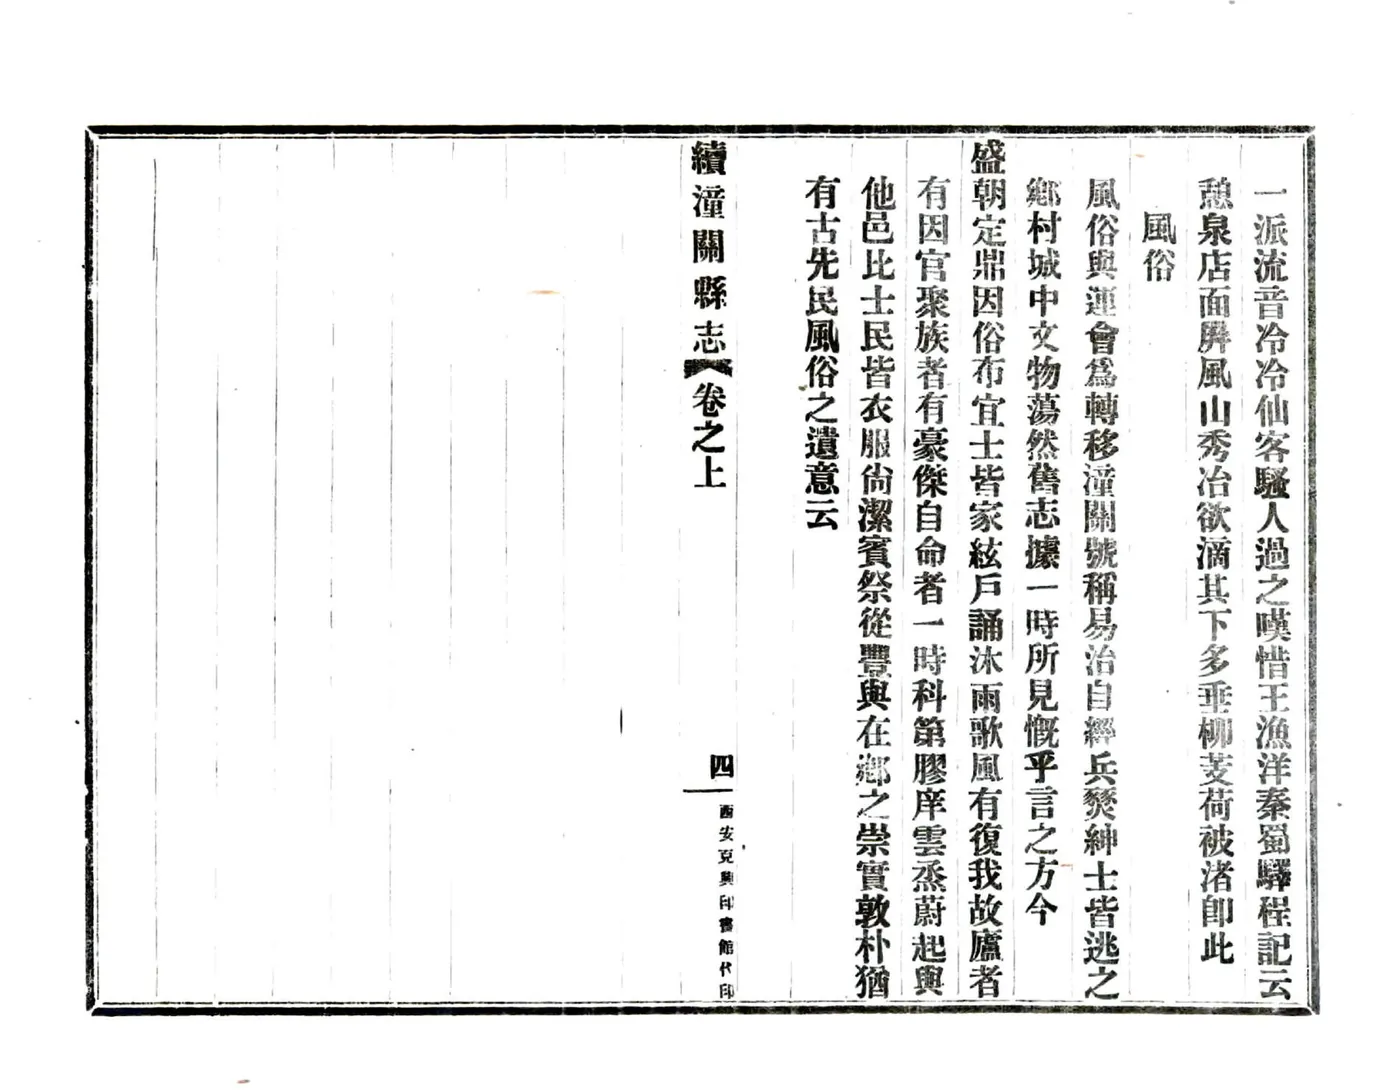 一派流音冷冷仙客騷人過之嘆惜王漁洋秦蜀驛程記云
憩泉店面屛風山秀冶欲滴其下多垂柳芰荷被渚卽此
風俗
風俗與運會爲轉移潼關號稱易治自經兵燹紳士皆逃之
鄕村城中文物蕩然舊志據一時所見慨乎言之方今
盛朝定鼎因俗布宜士皆家絃戶誦沐雨歌風有復我故廬者
有因官聚族者有豪傑自命者一時科第膠庠雲蒸蔚起與
他邑比士民皆衣服尙潔賓祭從豐與在鄕之崇實敦朴猶
有古先民風俗之遺意云
續潼關縣志
卷之上
四
西安克興印書館代印